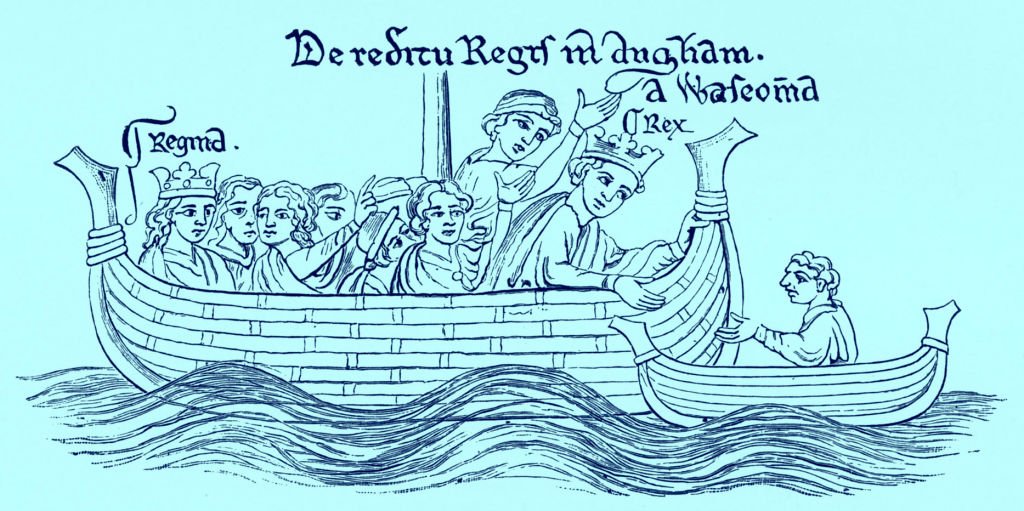 De reditu Regis in Angliam.
a Wasconia
¶ Rex
¶ Regina.